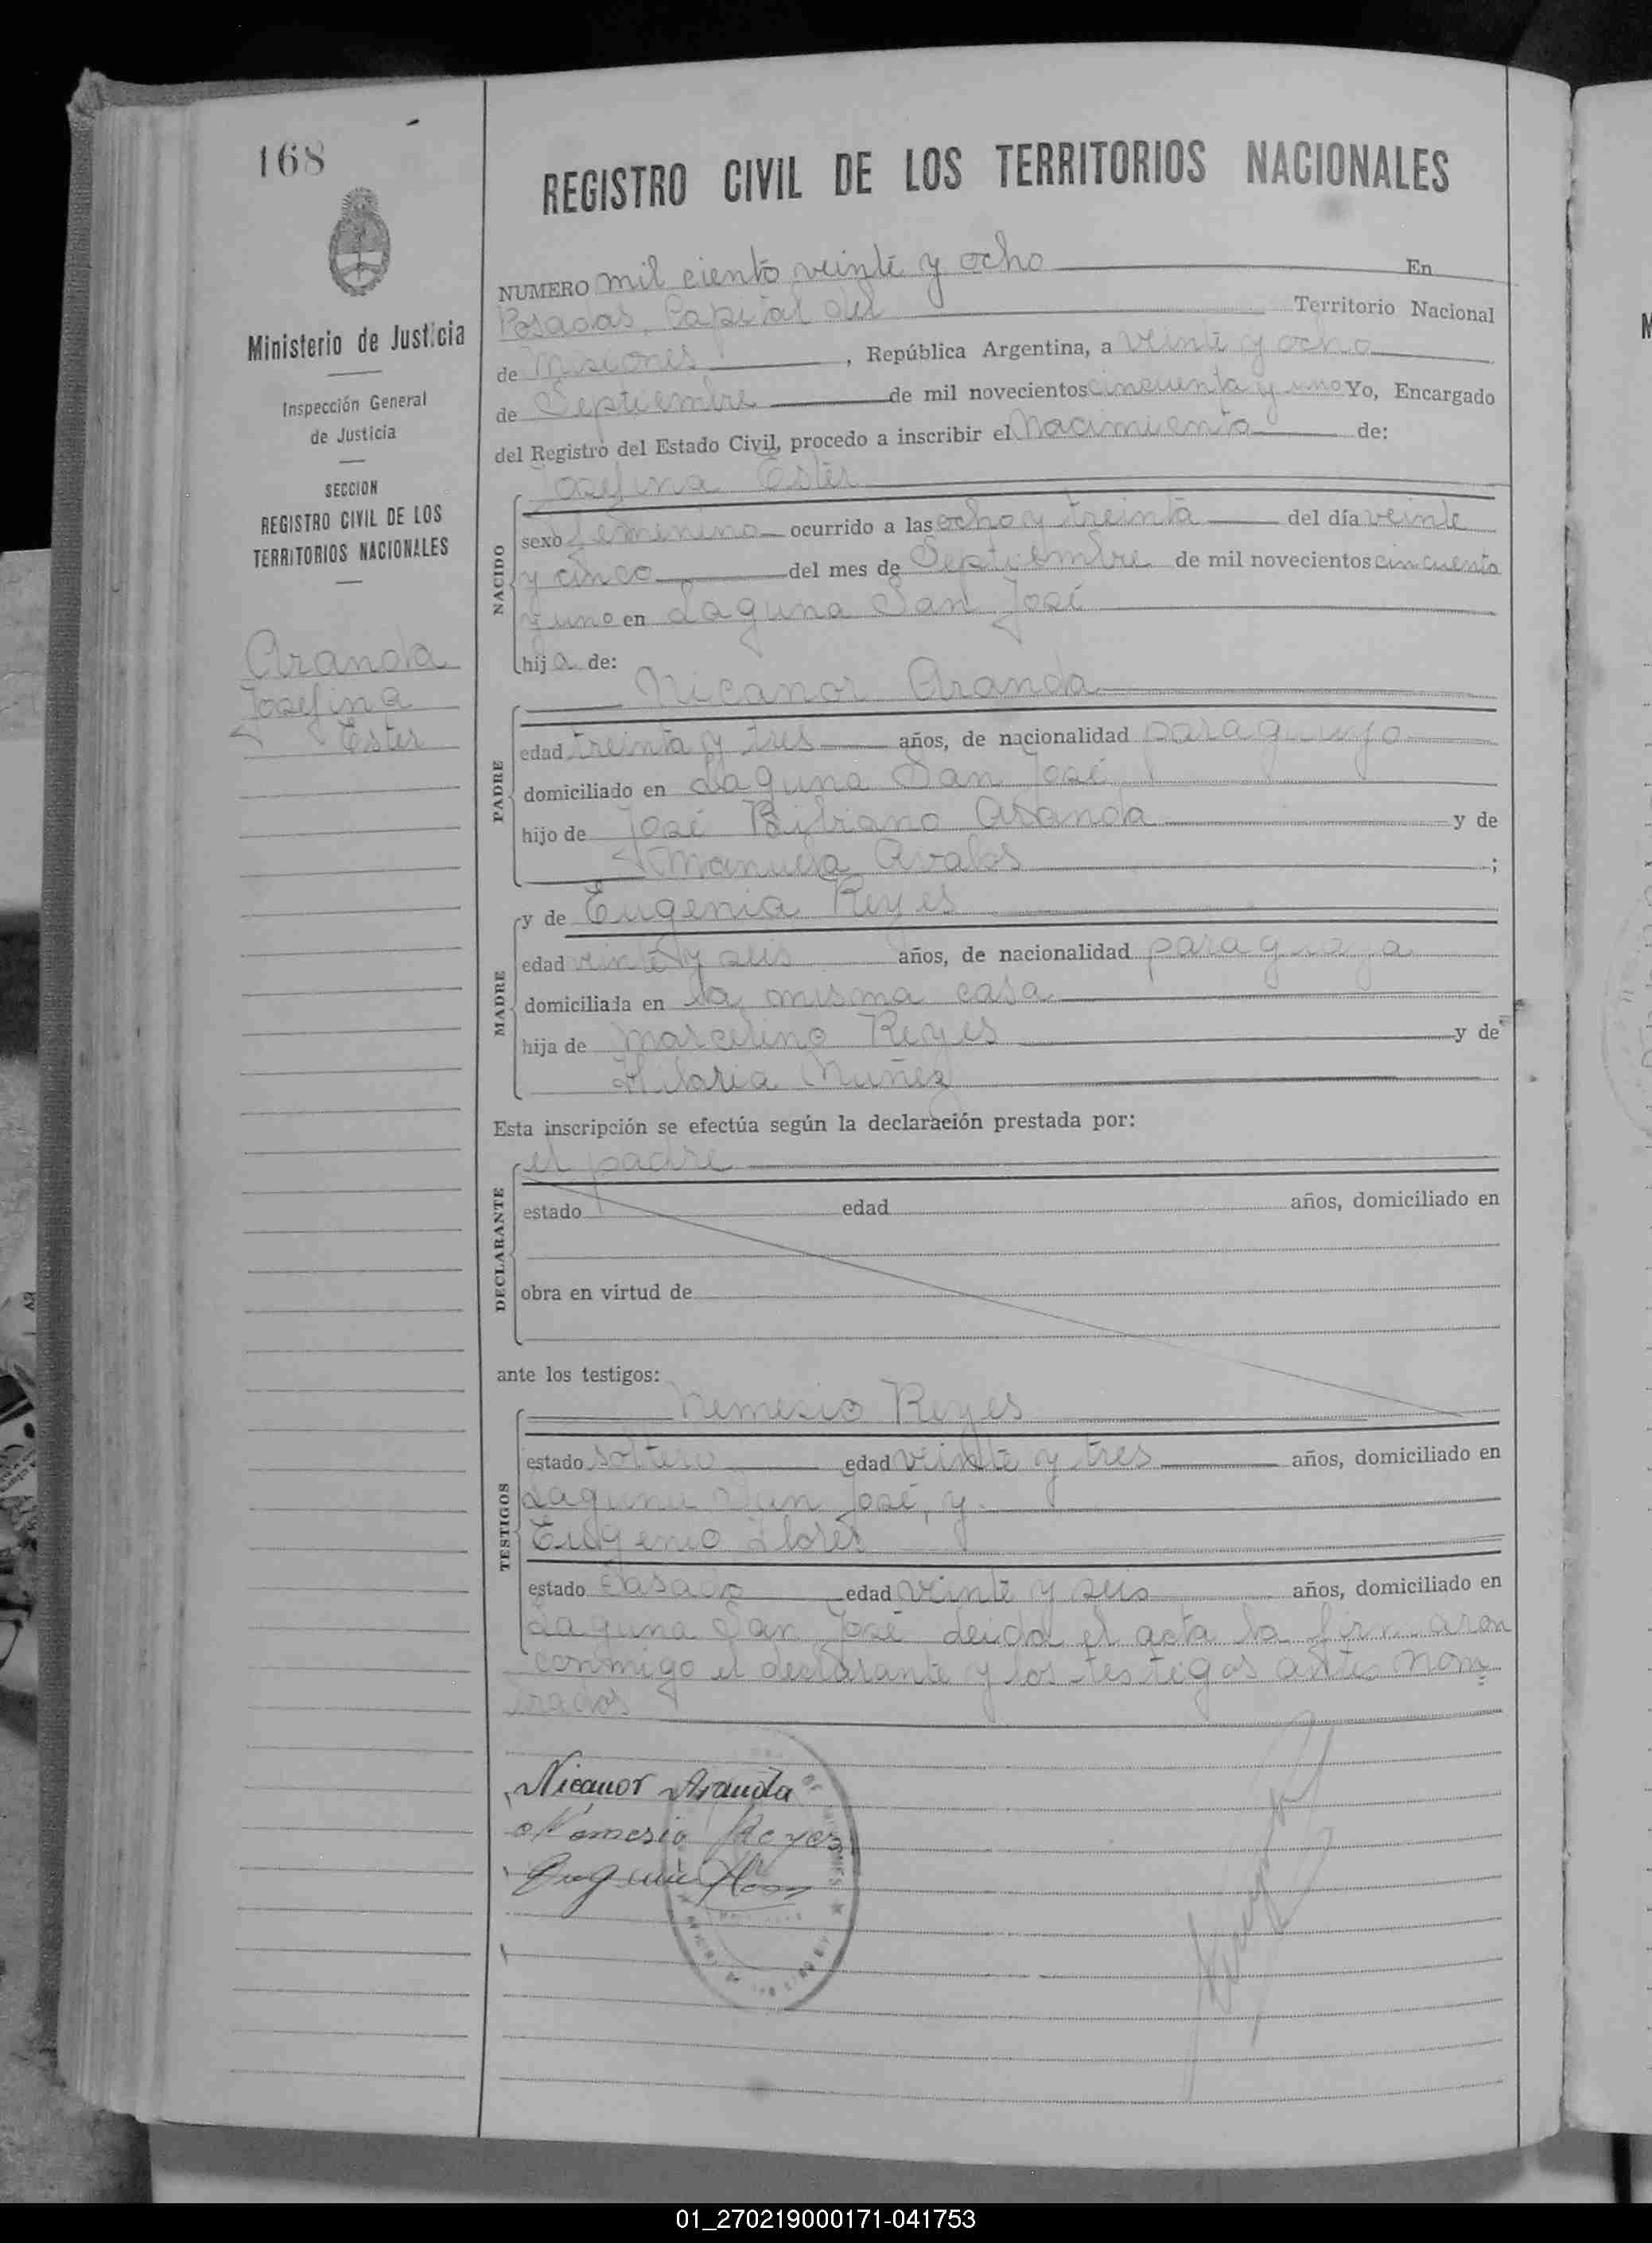 168
REGISTRO CIVIL DE LOS TERRITORIOS NACIONALES
Ministerio de Justicia
Inspección General
de Justicia
SECCION
REGISTRO CIVIL DE LOS
TERRITORIOS NACIONALES
Aranda
Josefina
Ester
NUMERO mil ciento veinte y ocho En
Posadas, Capital del Territorio Nacional
de Misiones, República Argentina, a veinte y ocho
de Septiembre de mil novecientos cincuenta y uno Yo, Encargado
del Registro del Estado Civil, procedo a inscribir el Nacimiento de:
Josefina Ester
NACIDO
sexo femenino ocurrido a las ocho y treinta del día veinte
y cinco del mes de Septiembre de mil novecientos cincuenta
y uno en Laguna San José
hija de:
Nicanor Aranda
PADRE
edad treinta y tres años, de nacionalidad paraguayo
domiciliado en Laguna San José
hijo de José Aranda y de
Manuela Avalos ;
y de Eugenia Reyes
MADRE
edad veinte y seis años, de nacionalidad paraguaya
domiciliada en la misma casa
hija de Marcelino Reyes y de
Hilaria Nuñez
Esta inscripción se efectúa según la declaración prestada por:
el padre
DECLARANTE
estado edad años, domiciliado en
obra en virtud de
ante los testigos:
Nemesio Reyes
TESTIGOS
estado soltero edad veinte y tres años, domiciliado en
Laguna San José, y
Eugenio Flores
estado casado edad veinte y seis años, domiciliado en
Laguna San José leida el acta la firmaron
conmigo el declarante y los testigos antes nom
brados
Nicanor Aranda
Nemesio Reyes
01_270219000171-041753